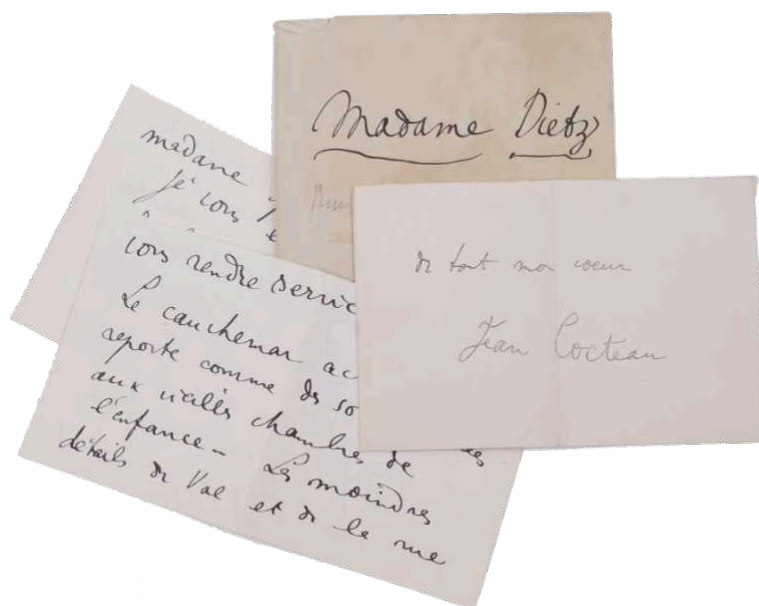 Madame Dietz
de tout mon coeur
Jean Cocteau
madame
je vous
vous rendre servic
Le cauchemar ac
reporte comme de so les
aux vieilles chambres de
l'enfance - Les moindres
détails du Val et de la rue